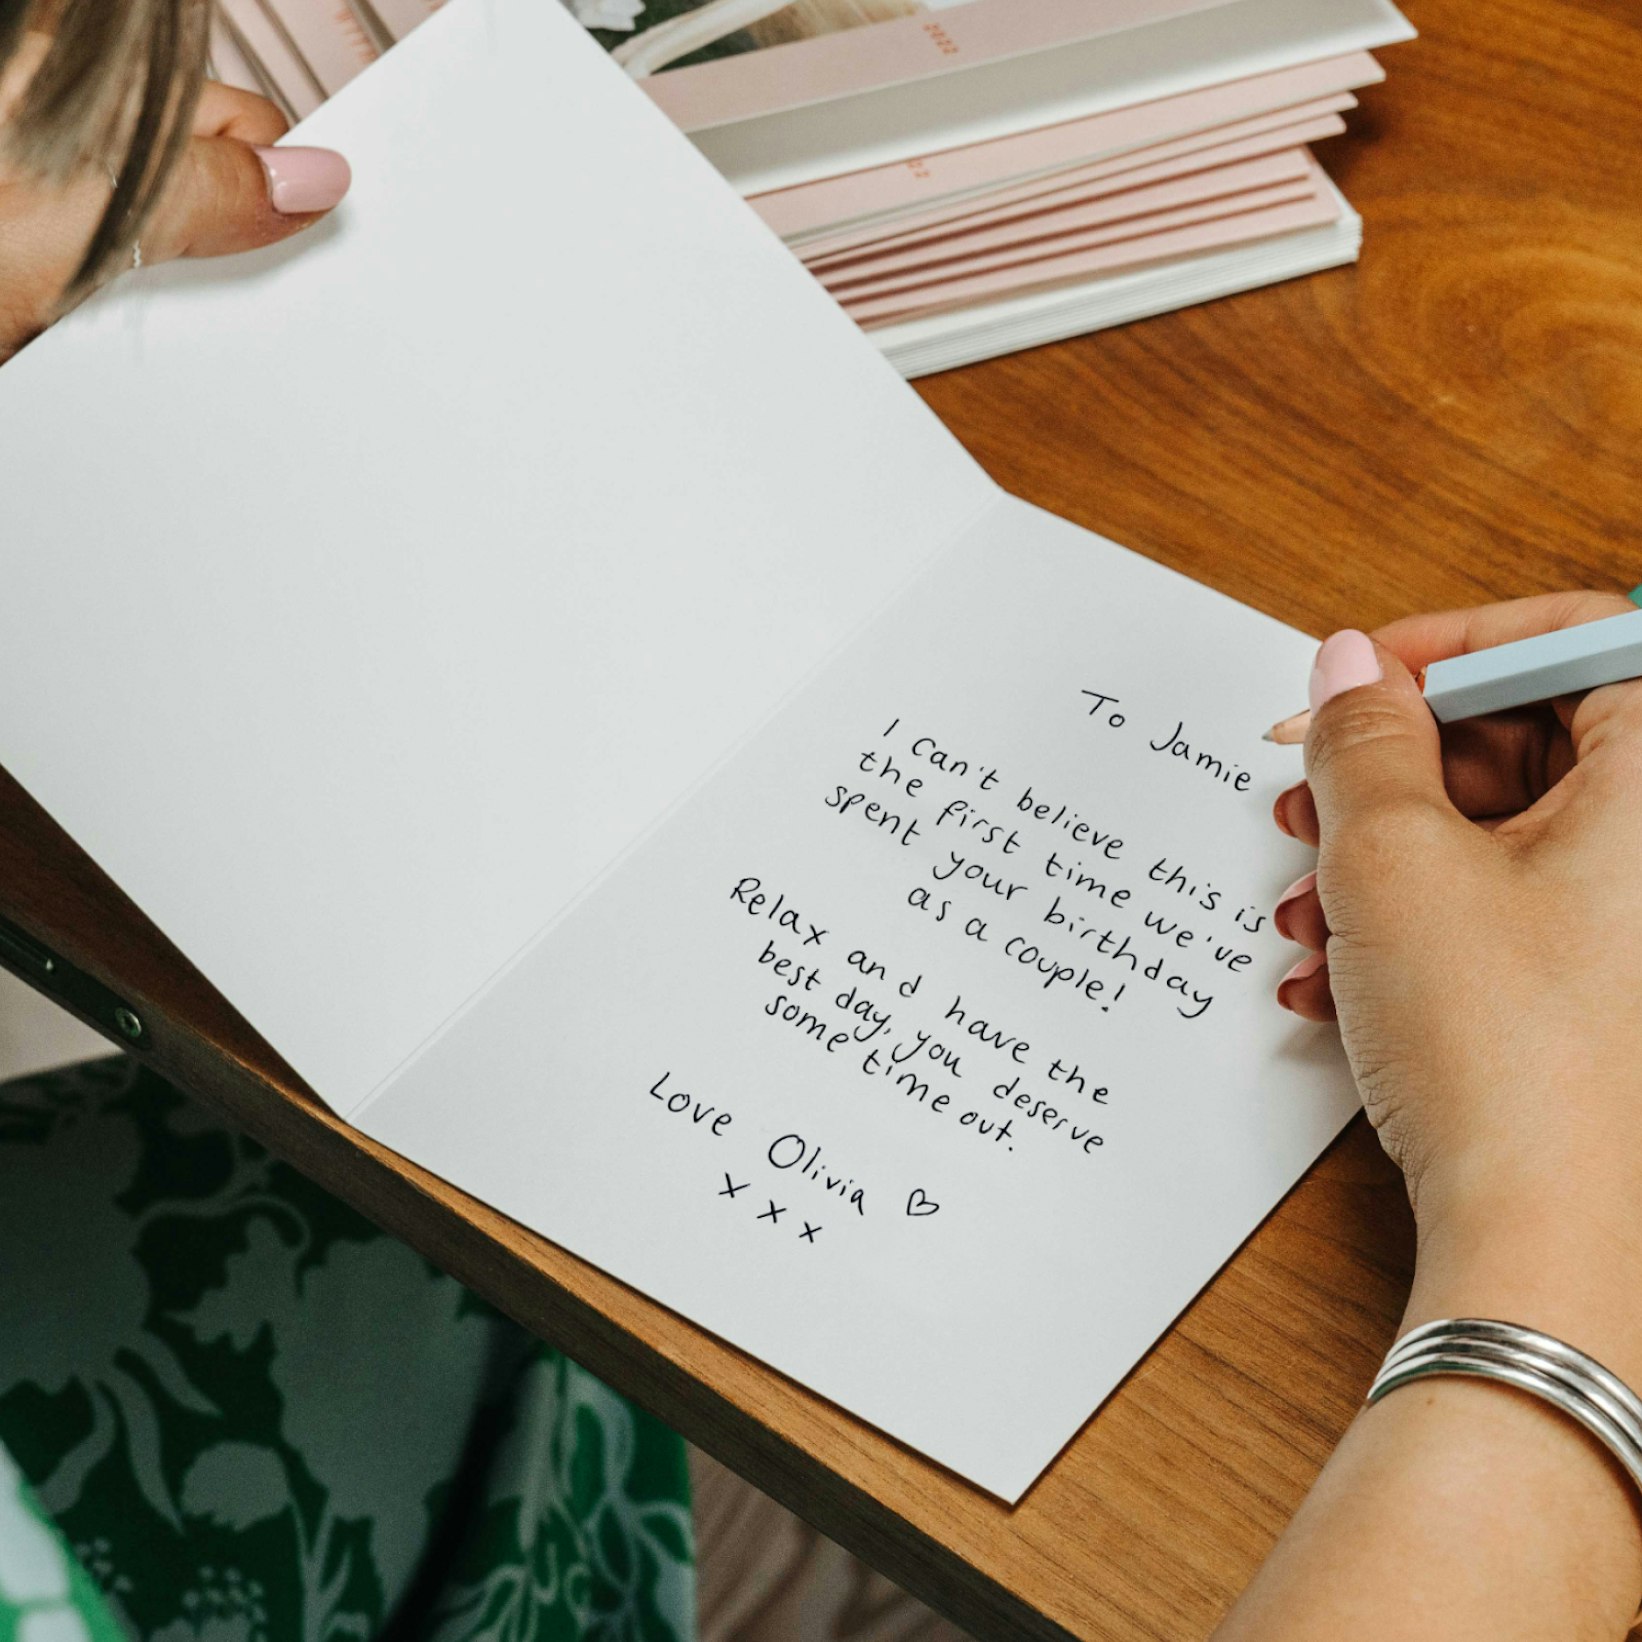 2022
22
To Jamie
I can't believe this is
the first time we've
spent your birthday
as a couple!
Relax and have the
best day, you deserve
some time out.
Love Olivia ♡
x x x